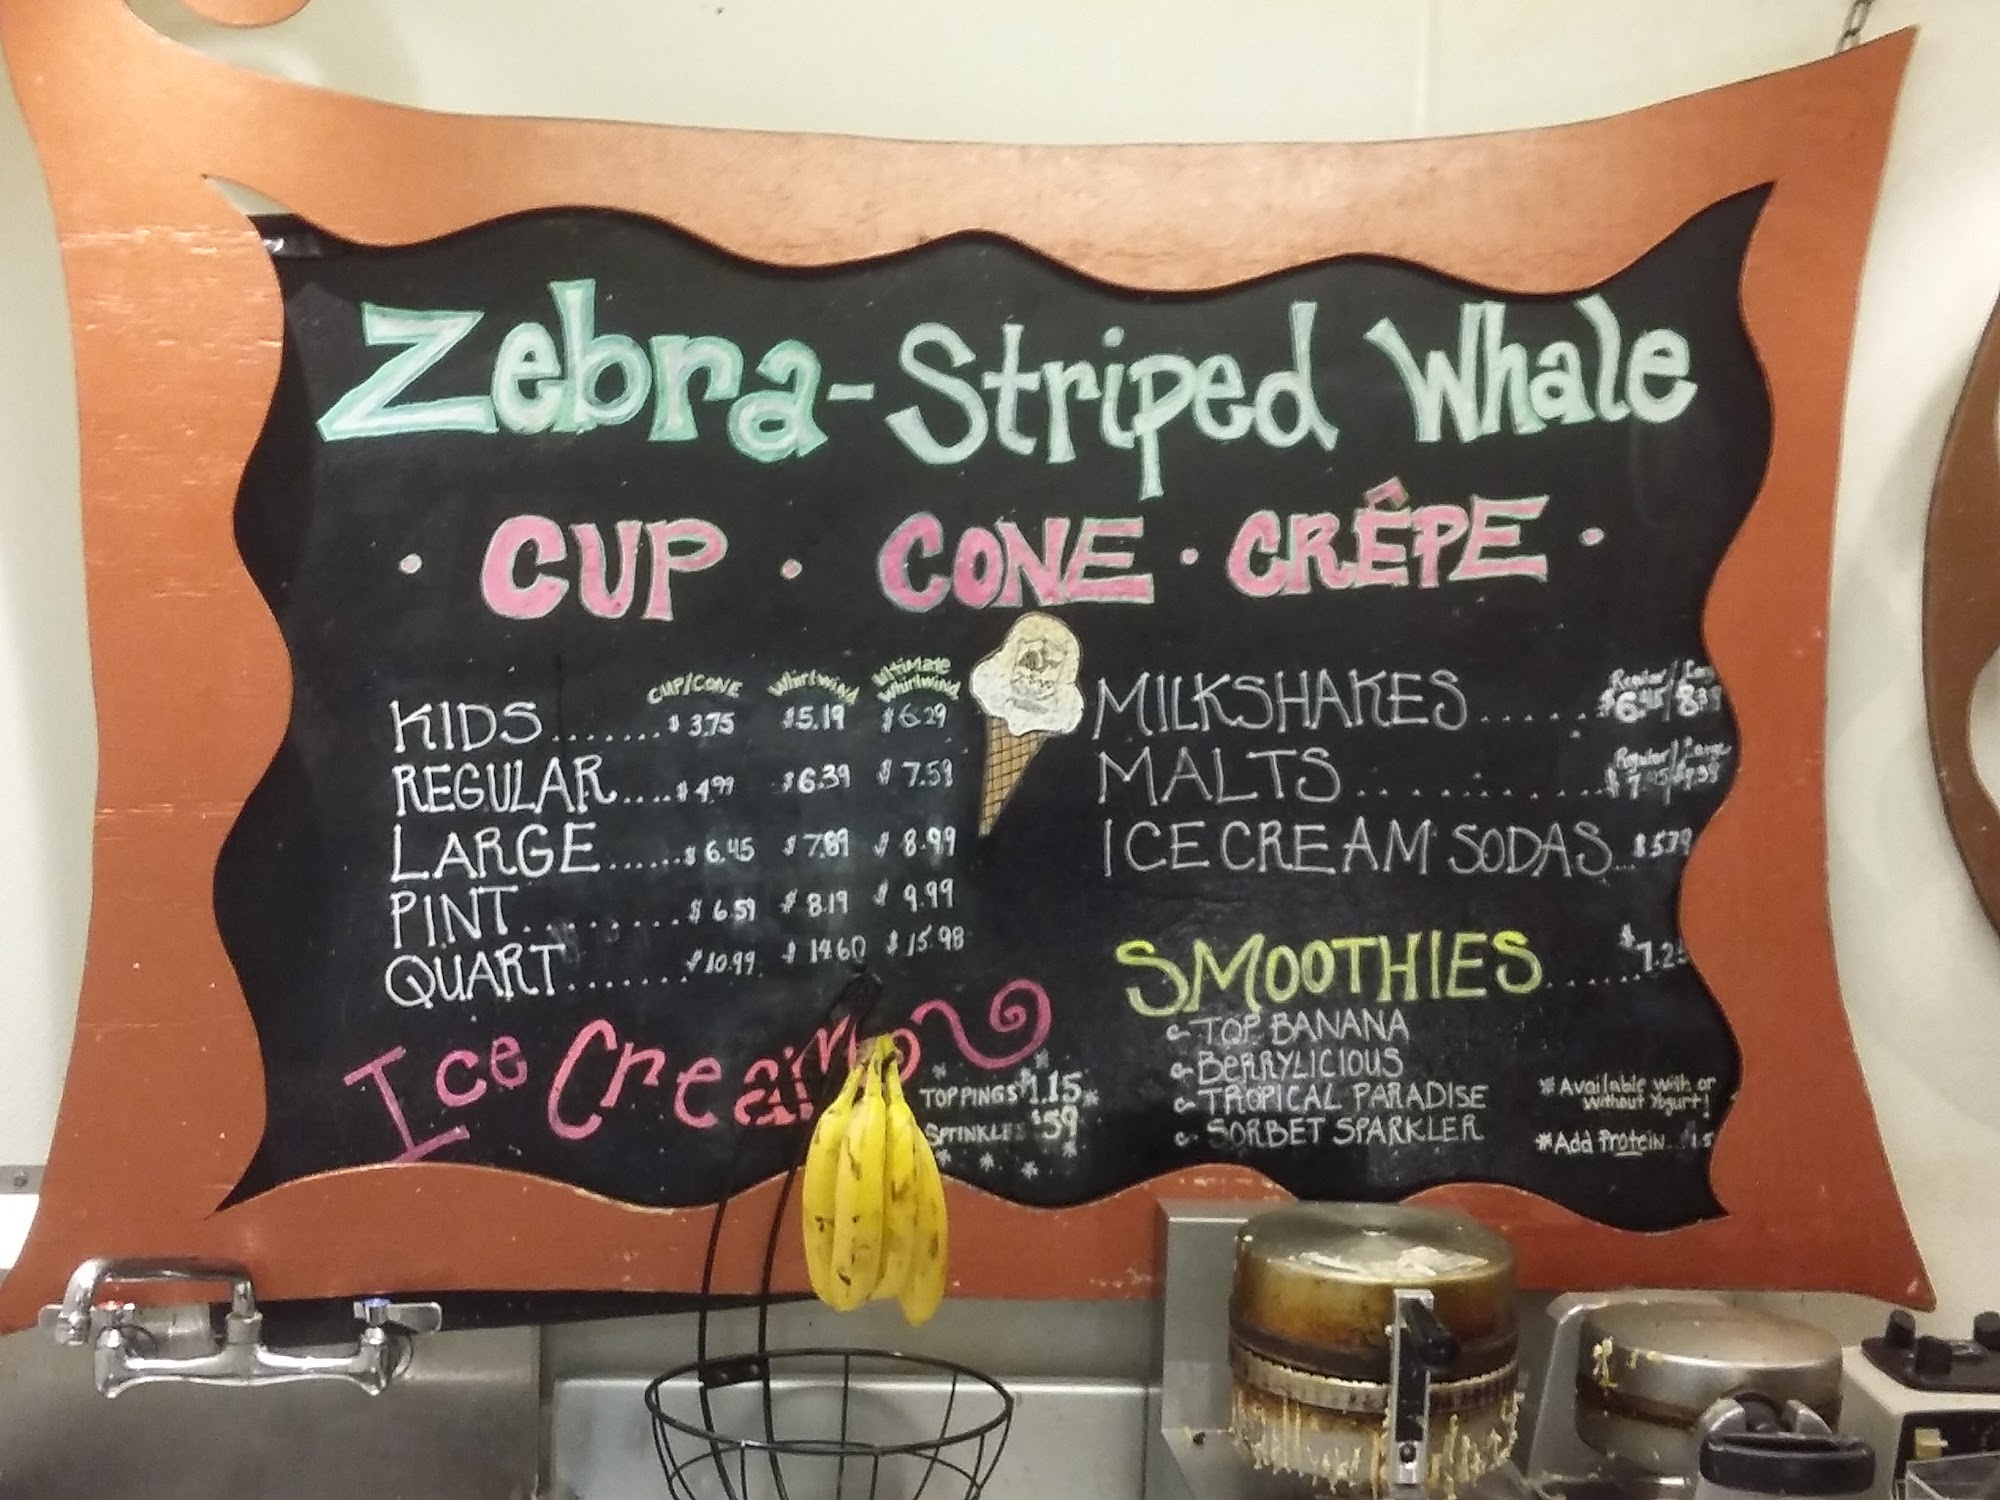 Zebra-Striped Whale
· CUP · CONE · CRÊPE ·
CUP/CONE Whirlwind Ultimate Whirlwind
KIDS.......$3.75 $5.19 $6.29
REGULAR....$4.99 $6.39 $7.59
LARGE......$6.45 $7.89 $8.99
PINT........$6.59 $8.19 $9.99
QUART.......$10.99 $14.60 $15.98
Ice Cream
TOPPINGS $1.15
SPRINKLES $.59
Regular/
MILKSHAKES......$6.45/8.39
Regular/Large
MALTS...........
ICE CREAM SODAS...$5.79
SMOOTHIES......
TOP BANANA
BERRYLICIOUS
TROPICAL PARADISE
SORBET SPARKLER
*Available with or
without Yogurt!
*Add Protein...